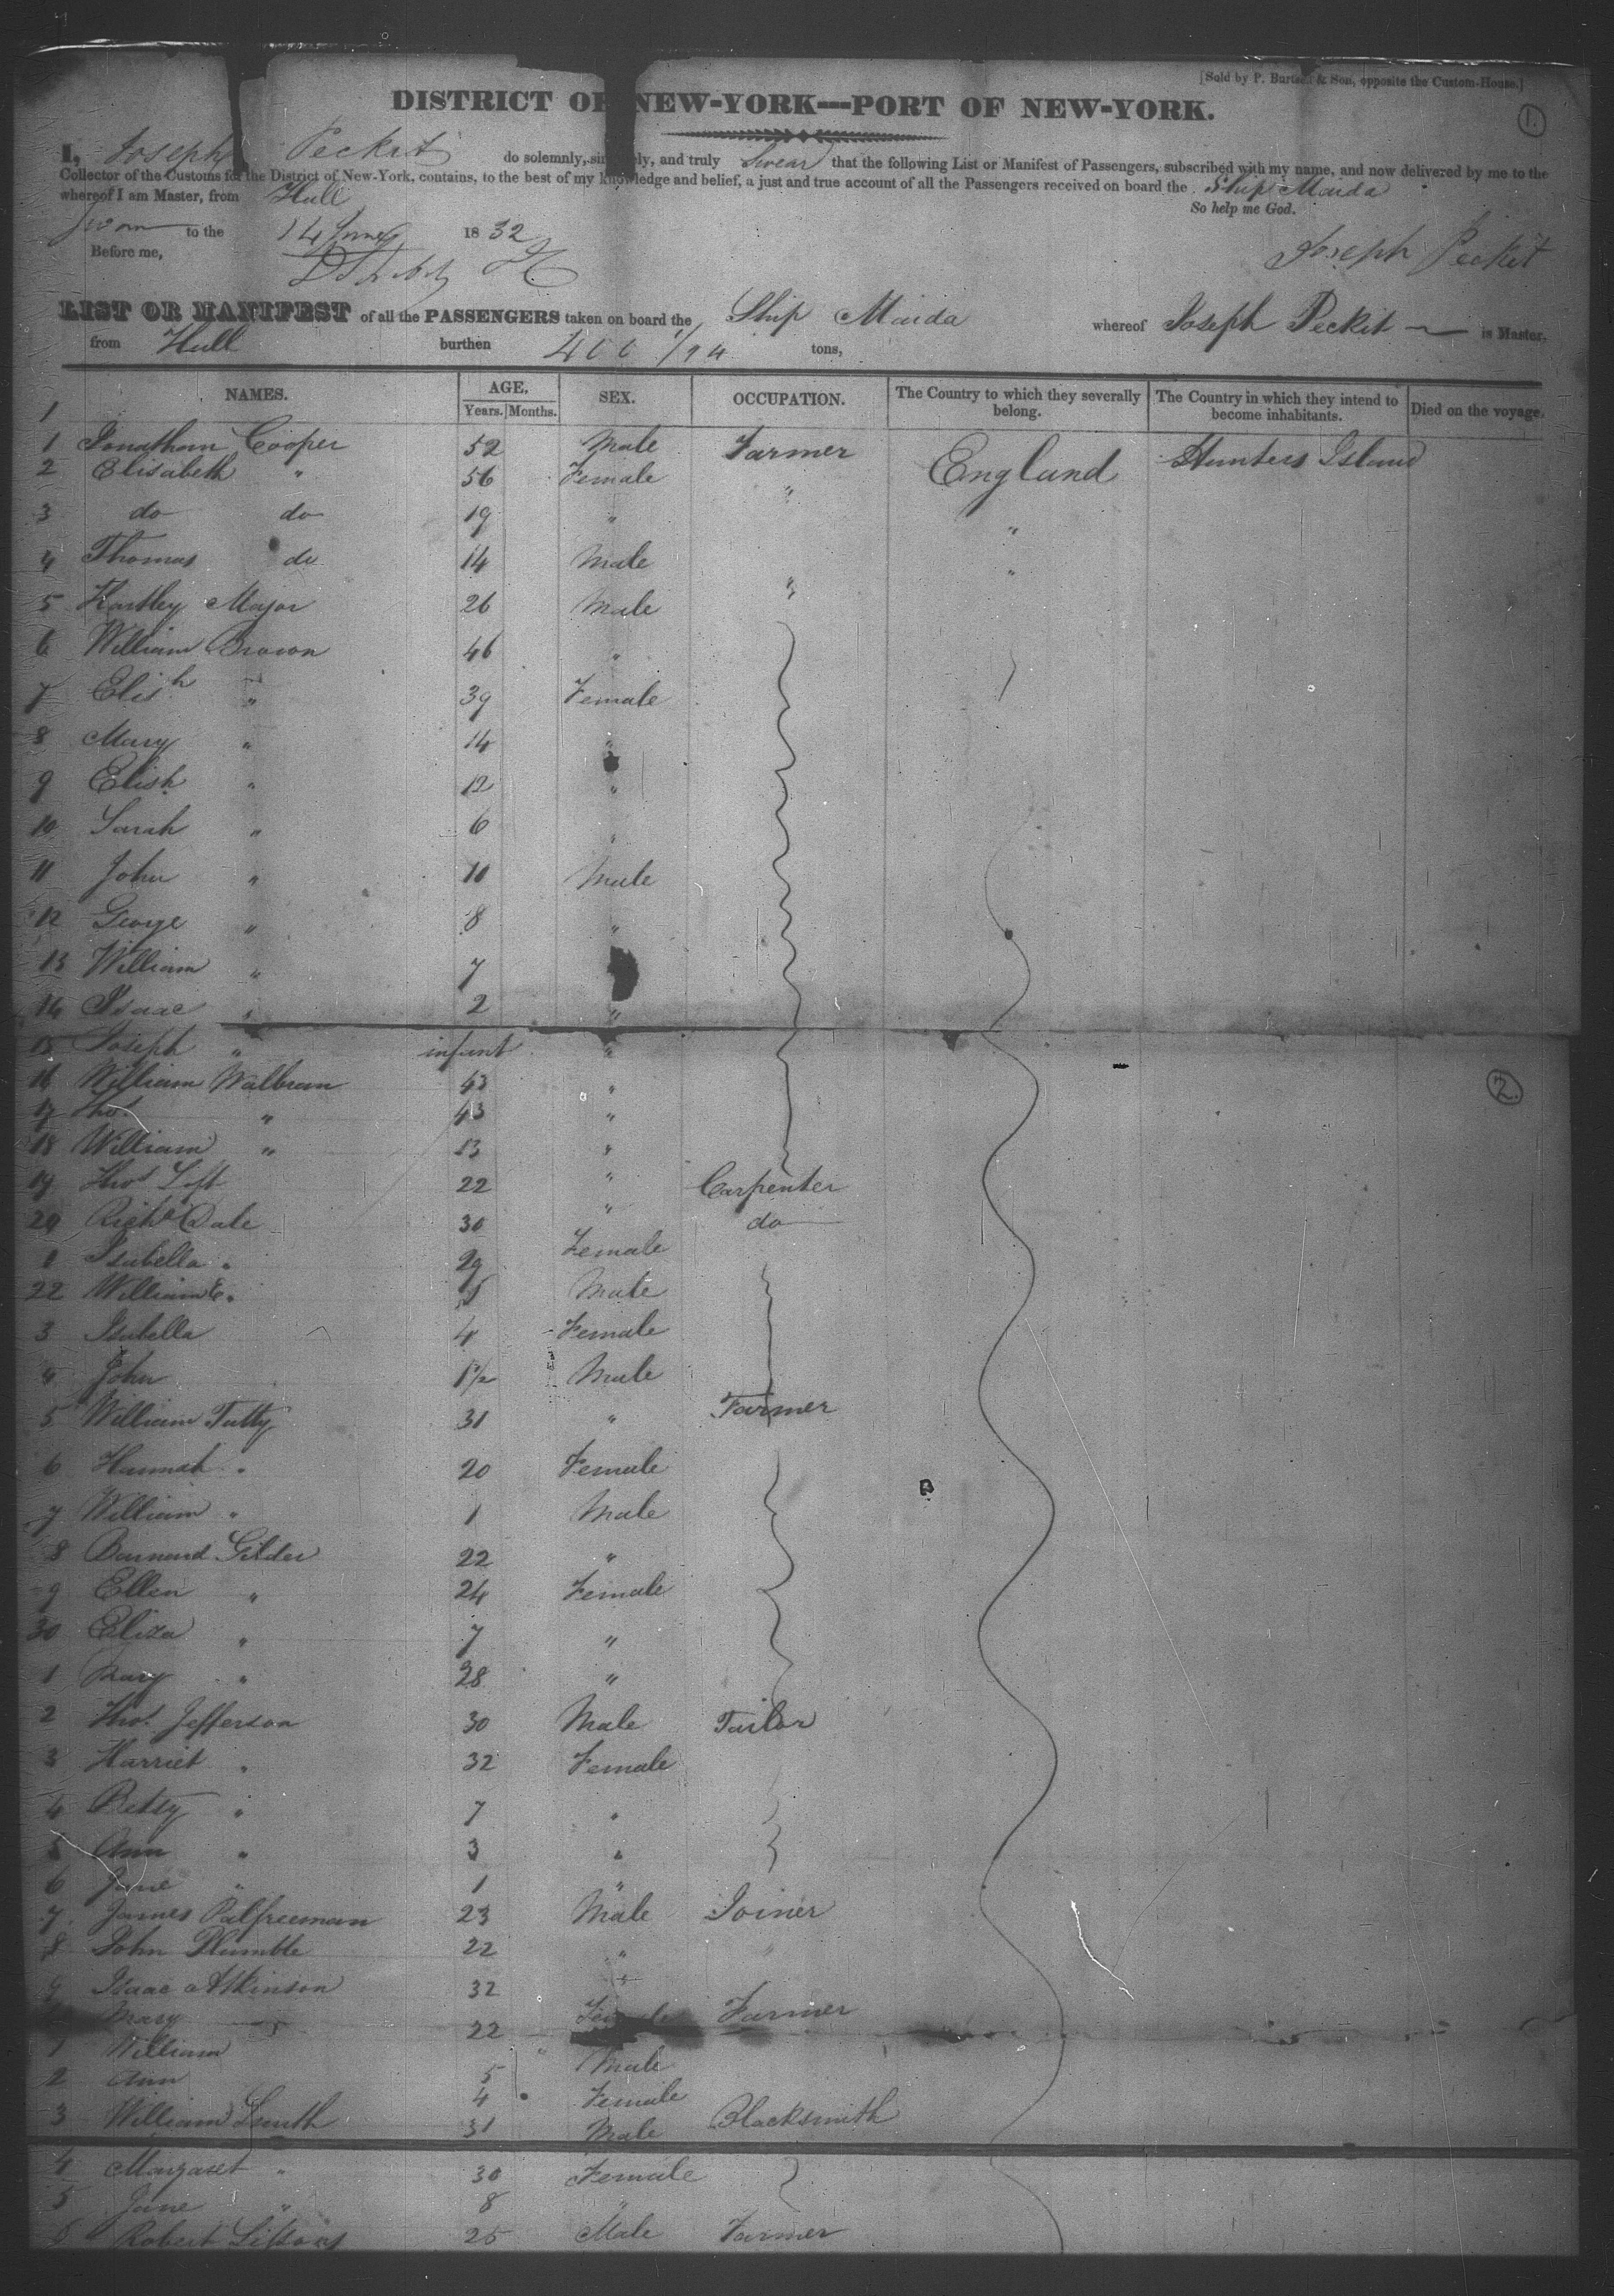 [Sold by P. Burtsell & Son, opposite the Custom-House.]
DISTRICT OF NEW-YORK---PORT OF NEW-YORK.
1.
I, Joseph Peckit do solemnly, sincerely, and truly Swear that the following List or Manifest of Passengers, subscribed with my name, and now delivered by me to the
Collector of the Customs for the District of New-York, contains, to the best of my knowledge and belief, a just and true account of all the Passengers received on board the Ship Maida
whereof I am Master, from Hull
So help me God.
Sworn to the 14 June 1832
Joseph Peckit
Before me,
LIST OR MANIFEST of all the PASSENGERS taken on board the Ship Maida whereof Joseph Peckit is Master,
from Hull burthen tons,
NAMES. AGE. SEX. OCCUPATION. The Country to which they severally belong. The Country in which they intend to become inhabitants. Died on the voyage.
Years. Months.
1
1 Jonathan Cooper 52 Male Farmer England Hunters Island
2 Elisabeth " 56 Female "
3 do do 19 " "
4 Thomas do 14 Male "
5 Hartley Major 26 Male "
6 William Brown 46 "
7 Elish " 39 Female
8 Mary " 14 "
9 Elish " 12 "
10 Sarah " 6 "
11 John " 10 Male
12 George " 8 "
13 William " 7
14 Isaac " 2 "
15 Joseph " infant "
16 William Walbran 43 "
17 Thos " 43 "
18 William " 13 "
19 Thos Loft 22 " Carpenter
20 Richd Dale 30 " do
1 Isabella " 29 Female
22 William " 5 Male
3 Isabella 4 Female
4 John 1½ Male
5 William Tutty 31 " Farmer
6 Hannah " 20 Female
7 William " 1 Male
8 Barnard Gilder 22 "
9 Ellen " 24 Female
30 Eliza " 7 "
1 Mary " 28 "
2 Thos Jefferson 30 Male Tailor
3 Harriet " 32 Female
4 Betsy " 7 "
5 Ann " 3 "
6 Jane " 1 "
7 James Palfreeman 23 Male Joiner
8 John Plumble 22 "
9 Isaac Atkinson 32 "
Mary 22 Female Farmer
1 William 5 Male
2 Ann 4 Female
3 William Smith 31 Male Blacksmith
4 Margaret " 30 Female
5 Jane " 8 "
6 Robert 25 Male Farmer
2.